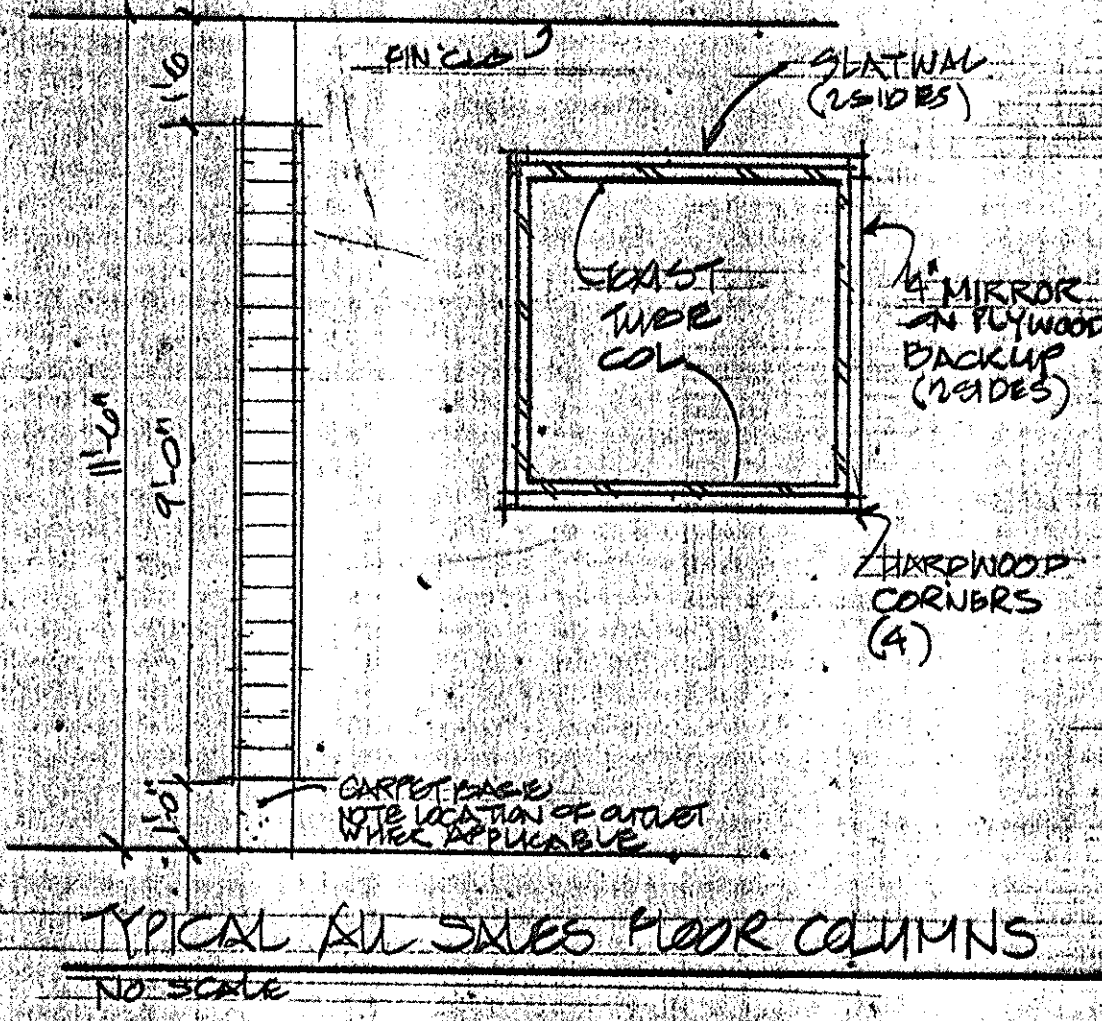 FIN CLG
SLATWAL
(2 SIDES)
1'-6
EXIST
TUBE
COL
4" MIRROR
ON PLYWOOD
BACKUP
(2 SIDES)
11'-6"
9'-0"
HARDWOOD
CORNERS
(4)
1'-0"
CARPET BASE
NOTE LOCATION OF OUTLET
WHER APPLICABLE
TYPICAL ALL SALES FLOOR COLUMNS
NO SCALE